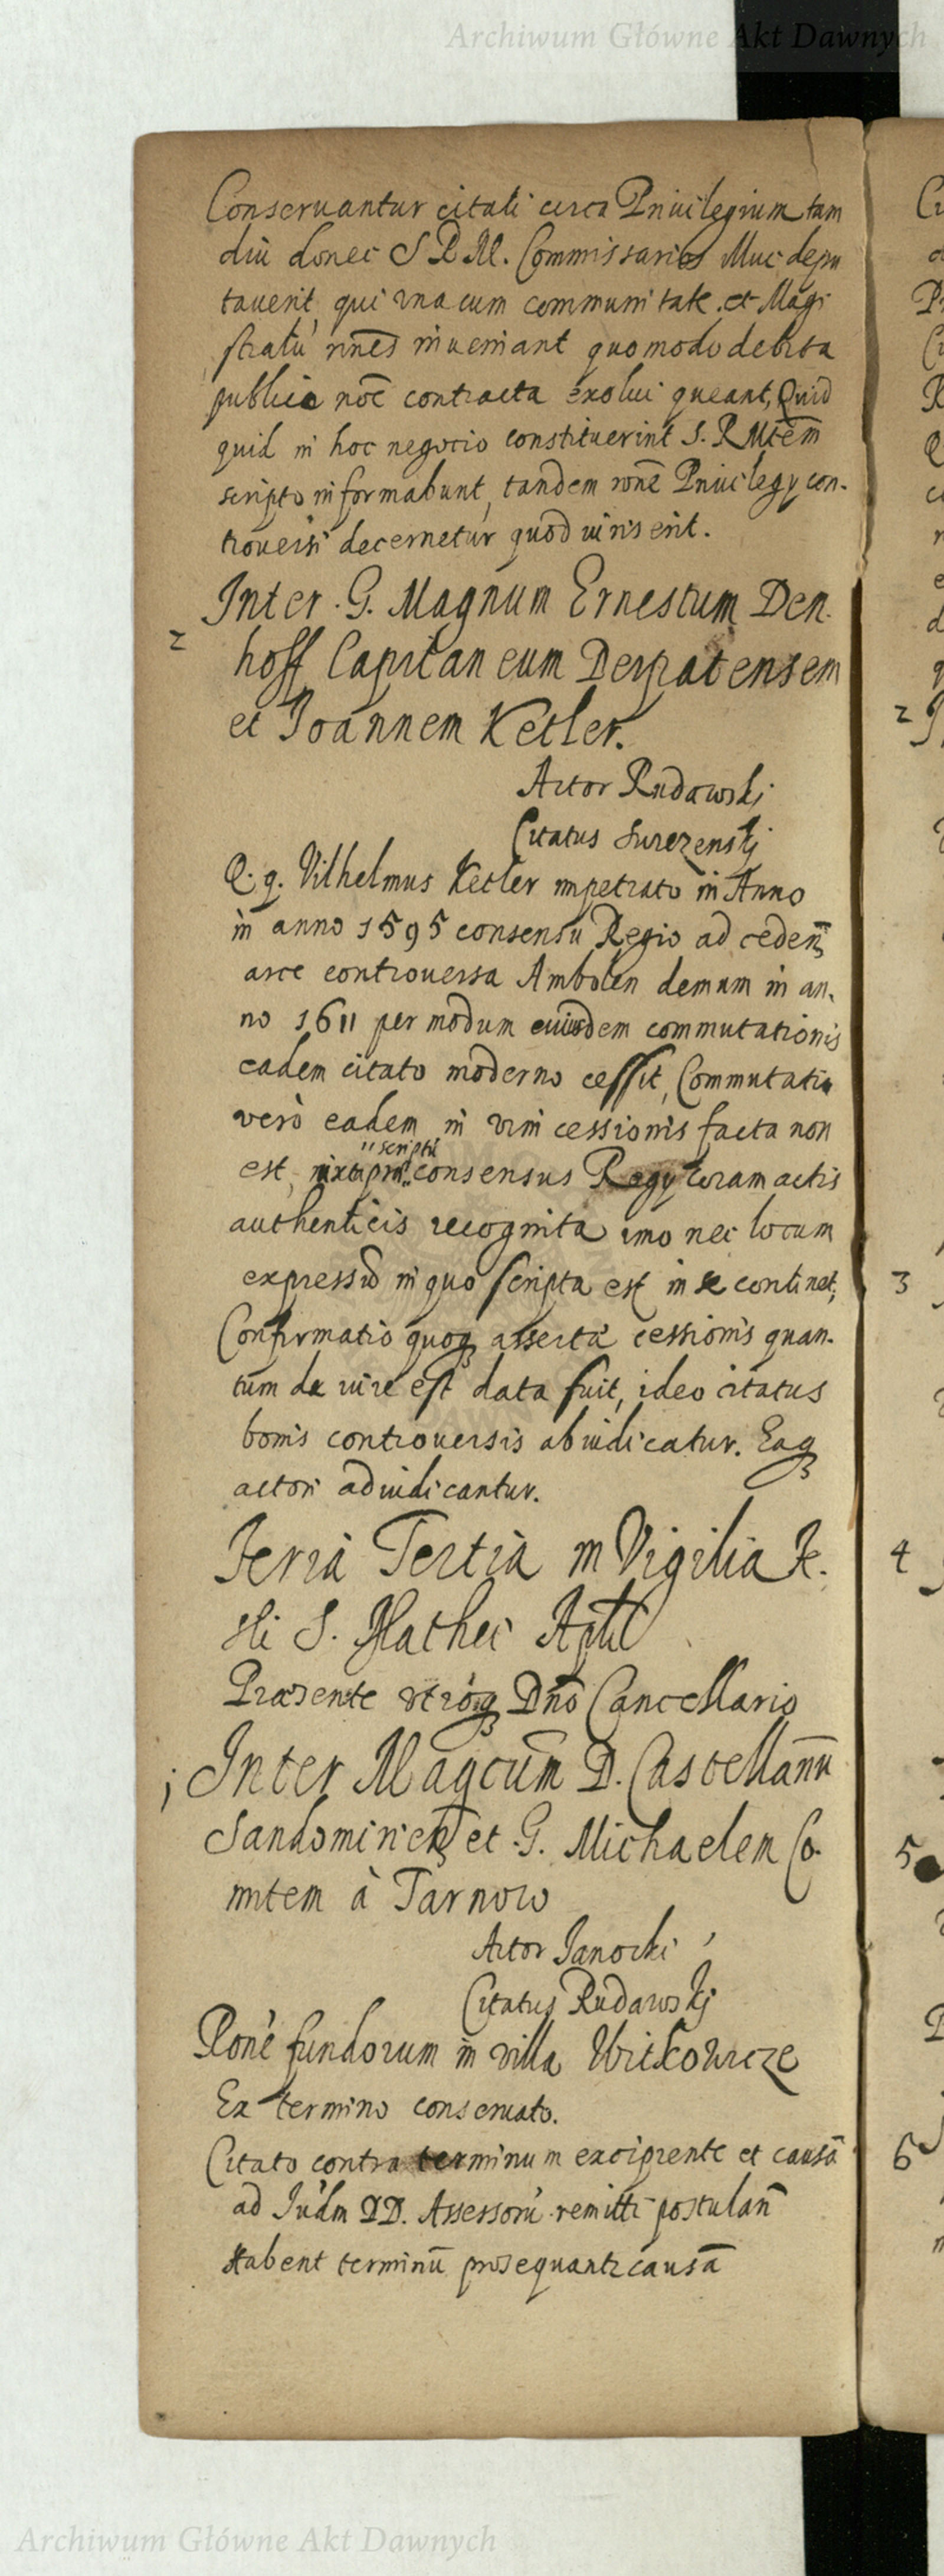 Archiwum Główne Akt Dawnych
Conseruantur citati circa Priuilegium tam
diu donec S R M. Commissarios illuc depu
tauerit, qui una cum communitate et Magi
stratu rōnes inueniant quomodo debita
publico nōē contracta exolui queant, Quid
quid in hoc negocio constituerint S. R Mtēm
scripto informabunt, tandem rōnē Priuilegy con-
trouersi decernetur quod iuris erit.
2
Inter G. Magnum Ernestum Den
hoff Capitaneum Derpatensem
et Joannem Ketler.
Actor Rudawskj
Citatus Surezenskj
Q. g. Vilhelmus Ketler impetrato in Anno
in anno 1595 consensu Regio ad ceden
arce controuersa Ambolen demum in an-
no 1611 per modum eiusdem commutationis
eadem citato moderno cessit, Commutatio
verò eadem in vim cessionis facta non
est, iuxta scriptū consensus Regy coram actis
authenticis recognita imo nec locum
expressū in quo scripta est in se continet,
Confirmatio quoq assertæ cessionis quan-
tum de iure est data fuit, ideo citatus
bonis controuersis abiudicatur. Eaq
actori adiudicantur.
Feria Tertia in Vigilia Fe-
sti S. Mathei Aptli
Præsente utroq Dno Cancellario
1
Inter Magcum D. Castellanū
Sandomirien et G. Michaelem Co-
mitem à Tarnow
Actor Janocki
Citatus Rudawskj
Rone fundorum in villa Witkowicze
Ex termino conseruato.
Citato contra terminum excipiente et causā
ad Iudm DD. Assessorū remitti postulan
stabent terminū prosequantr causā
Archiwum Główne Akt Dawnych